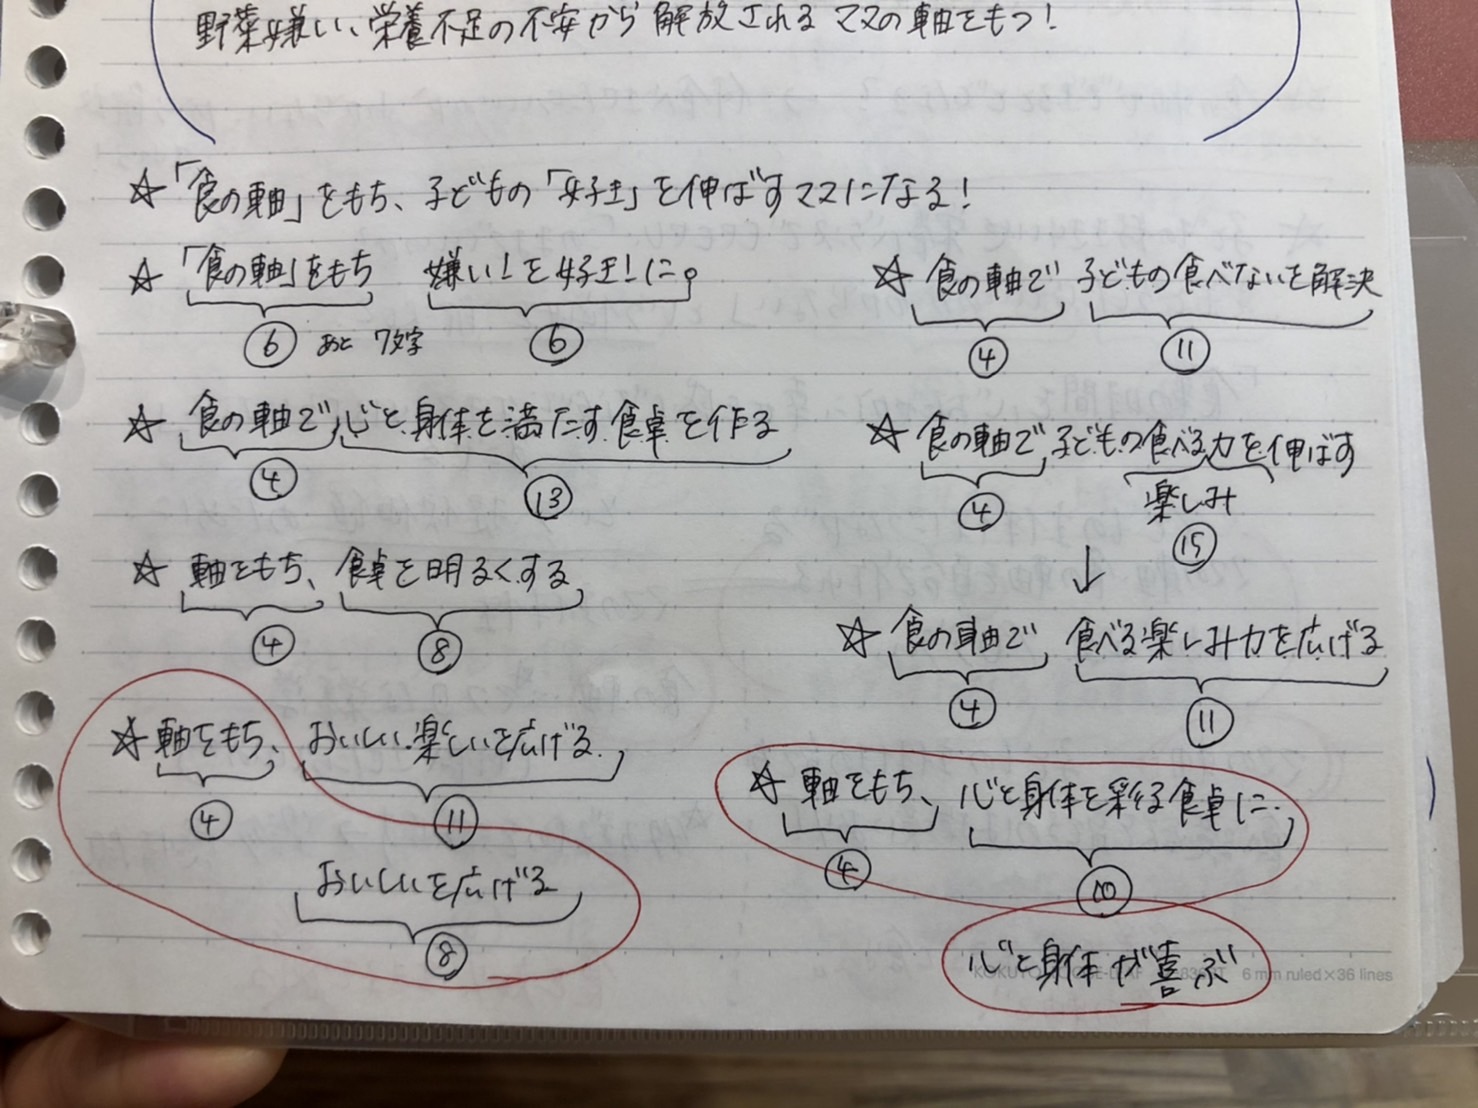 野菜嫌い、栄養不足の不安から解放されるママの軸をもつ!
☆「食の軸」をもち、子どもの「好き」を伸ばすママになる!
☆「食の軸」をもち 嫌い!を好き!に。
⑥ あと 7文字 ⑥
☆ 食の軸で 子どもの食べないを解決
④ ⑪
☆ 食の軸で心と身体を満たす食卓を作る
④ ⑬
☆ 食の軸で子どもの食べる力を伸ばす
④ 楽しみ
⑮
↓
☆ 軸をもち、食卓を明るくする
④ ⑧
☆ 食の軸で 食べる楽しみ力を広げる
④ ⑪
☆ 軸をもち、おいしい楽しいを広げる
④ ⑪
おいしいを広げる
⑧
☆ 軸をもち、心と身体を彩る食卓に
④ ⑩
心と身体が喜ぶ
6 mm ruled×36 lines